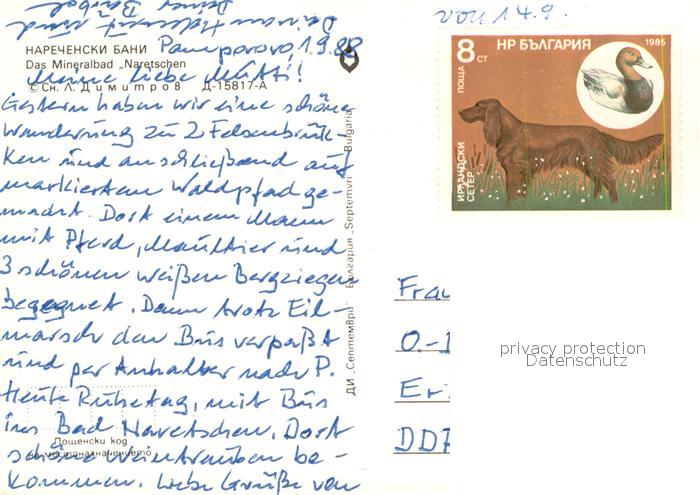 von 14.9.
НАРЕЧЕНСКИ БАНИ
Das Mineralbad „Naretschen
© Сн. Л. Димитров Д-15817-А
Pamporovo 1.9.88
Meine liebe Mutti!
Gestern haben wir eine schöne
Wanderung zu 2 Felsenbrük-
ken und anschließend auf
markiertem Waldpfad ge-
macht. Dort einem Mann
mit Pferd, Maultier und
3 schönen weißen Bergziegen
begegnet. Dann trotz Eil-
marsch den Bus verpaßt
und per Anhalter nach P.
Heute Ruhetag, mit Bus
ins Bad Naretschen. Dort
schöne Weintrauben be-
kommen. Liebe Grüße von
Deinem Helmut und
Deiner Bärbel
Пощенски код
на местоназначението
ДИ „Септември" България „Septemvri" Bulgaria
НР БЪЛГАРИЯ
1985
8 СТ
ПОЩА
ИРЛАНДСКИ
СЕТЕР
Frau
O.-
Er
DD7
privacy protection
Datenschutz